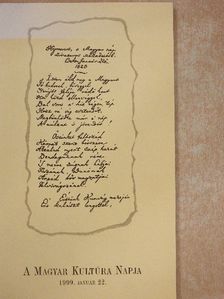 Hymnus, a' Magyar nép
zivataros századaiból.
1823
Isten áldd meg a' Magyart
Jó kedvvel, bőséggel
Nyújts feléje védő kart
Ha küzd ellenséggel;
Bal sors a' kit régen tép
Hozz rá víg esztendőt,
Megbűnhődte már e' nép
A' multat 's jövendőt.
Őseinket felhozád
Kárpát szent bérczére
Általad nyert szép hazát
Bendegúznak vére
'S merre zúgnak habjai
Tiszának, Dunának
Árpád hős magzatjai
Felvirágozának.
Értünk Kunság mezején
Ért kalászt lengettél
A MAGYAR KULTÚRA NAPJA
1999. JANUÁR 22.